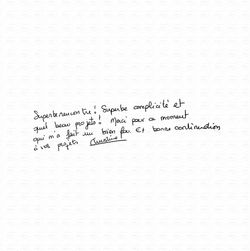 Superbe rencontre ! Superbe complicité et
quel beau projets ! Merci pour ce moment
qui m'a fait un bien fou. Et bonne continuation
à vos projets